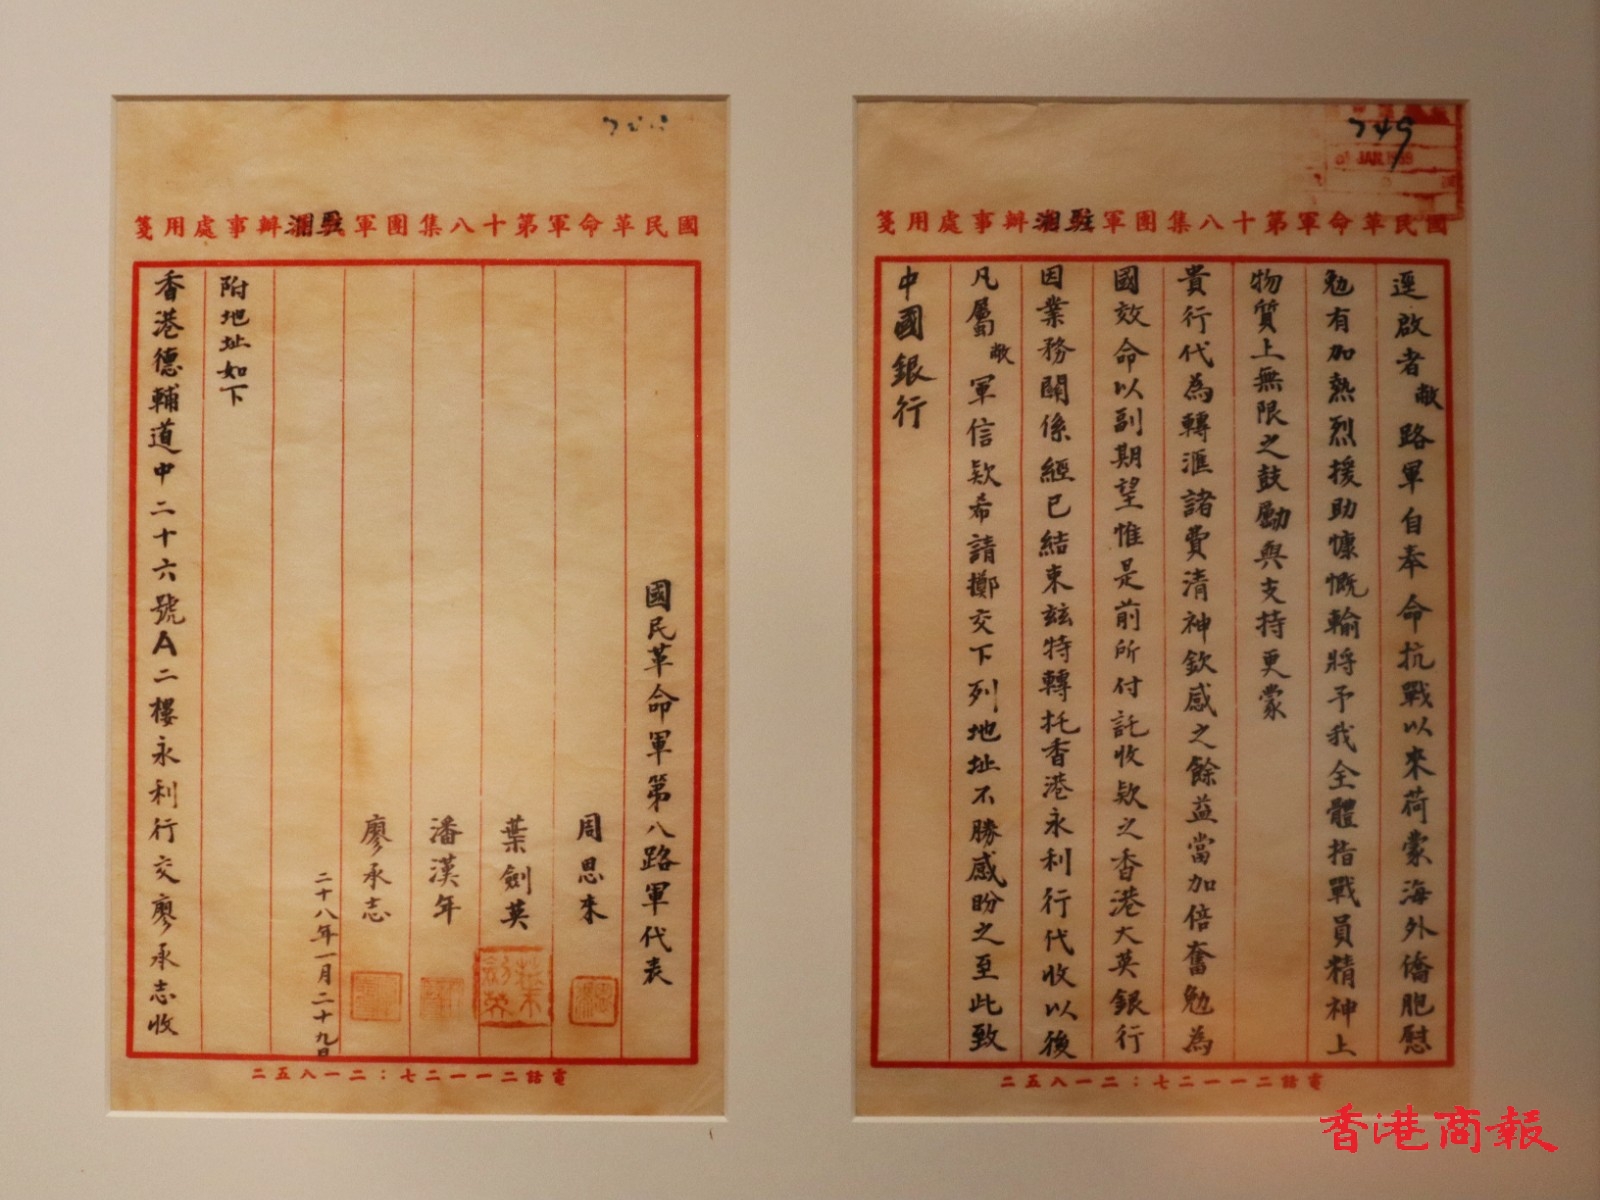 749
JAN
國民革命軍第十八集團軍駐湘辦事處用箋
逕啟者敝路軍自奉命抗戰以來荷蒙海外僑胞慰
勉有加熱烈援助慷慨輸將予我全體指戰員精神上
物質上無限之鼓勵與支持更蒙
貴行代為轉滙諸費清神欽感之餘益當加倍奮勉為
國效命以副期望惟是前所付託收欵之香港大英銀行
因業務關係經已結束玆特轉托香港永利行代收以後
凡屬敝軍信欵希請擲交下列地址不勝感盼之至此致
中國銀行
電話二一一二七：二一八五二
國民革命軍第十八集團軍駐湘辦事處用箋
國民革命軍第八路軍代表
周恩來
葉劍英
潘漢年
廖承志
二十八年一月二十九日
附地址如下
香港德輔道中二十六號A二樓永利行交廖承志收
電話二一一二七：二一八五二
香港商報